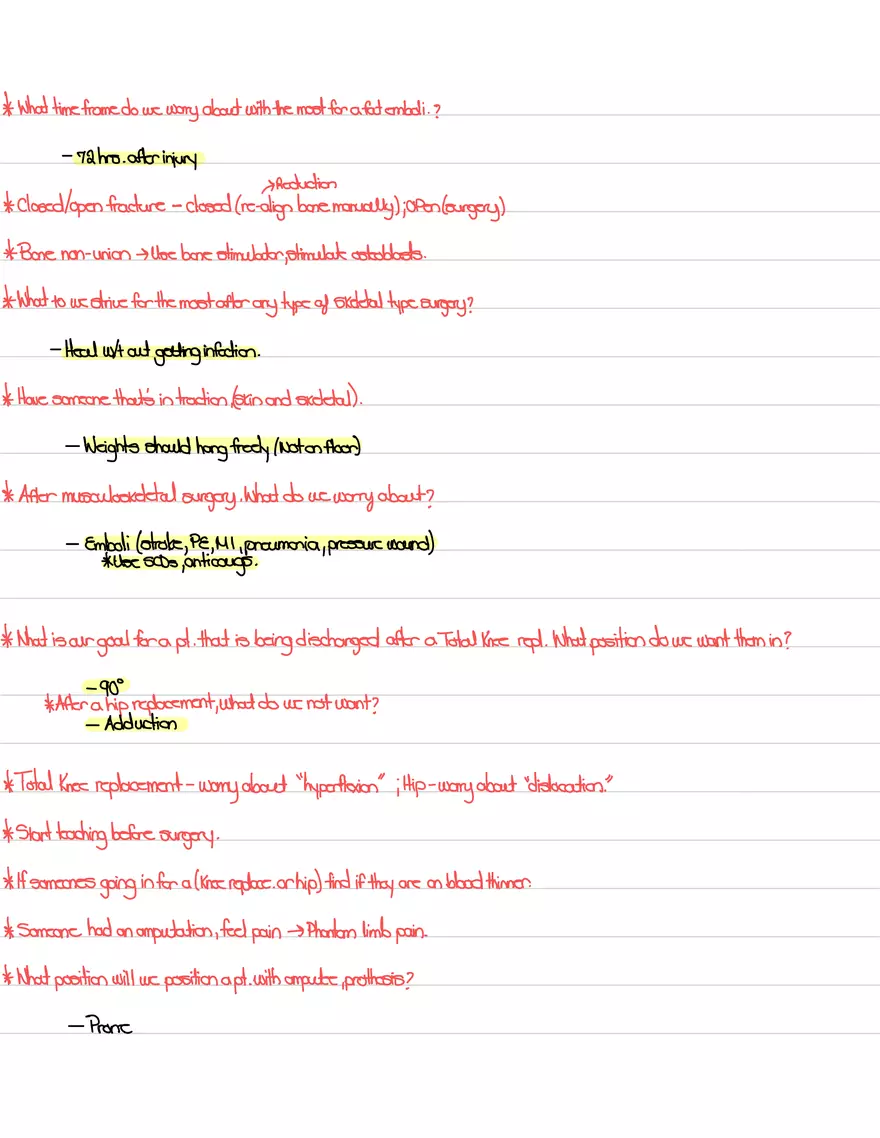 * What time frame do we worry about with the most for a fat emboli.?
- 72 hrs. after injury
→ Reduction
* Closed/open fracture - closed (re-align bone manually); OPen (surgery)
* Bone non-union → Use bone stimulator, stimulate osteoblasts.
* What to we strive for the most after any type of skeletal type surgery?
- Heal w/t out getting infection.
* Have someone that's in traction (skin and skeletal).
- Weights should hang freely (Not on floor)
* After musculoskeletal surgery. What do we worry about?
- Emboli (stroke, PE, MI, pneumonia, pressure wound)
*Use SCDs, anticougs.
* What is our goal for a pt. that is being discharged after a Total Knee repl. What position do we want them in?
- 90°
*After a hip replacement, what do we not want?
- Adduction
* Total Knee replacement - worry about "hyperflexion" ; Hip - worry about "dislocation."
* Start teaching before surgery.
* If someones going in for a (Knee replace. or hip) find if they are on blood thinner.
* Someone had an amputation, feel pain → Phantom limb pain.
* What position will we position a pt. with amputee, prothesis?
- Prone